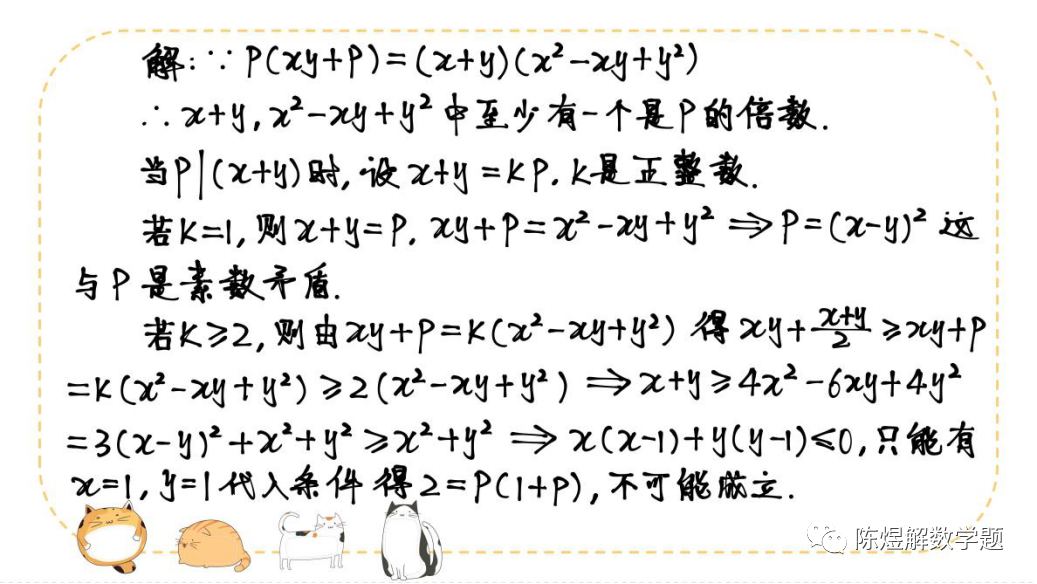 解:∵ P(xy+P)=(x+y)(x²-xy+y²)
∴ x+y, x²-xy+y² 中至少有一个是P的倍数.
当P|(x+y)时,设x+y=KP. K是正整数.
若K=1,则x+y=P. xy+P=x²-xy+y² ⇒ P=(x-y)² 这
与P是素数矛盾.
若K≥2,则由xy+P=K(x²-xy+y²) 得 xy+\frac{x+y}{2}≥xy+P
=K(x²-xy+y²)≥2(x²-xy+y²) ⇒ x+y≥4x²-6xy+4y²
=3(x-y)²+x²+y²≥x²+y² ⇒ x(x-1)+y(y-1)≤0,只能有
x=1,y=1代入条件得2=P(1+P),不可能成立.
陈煜解数学题